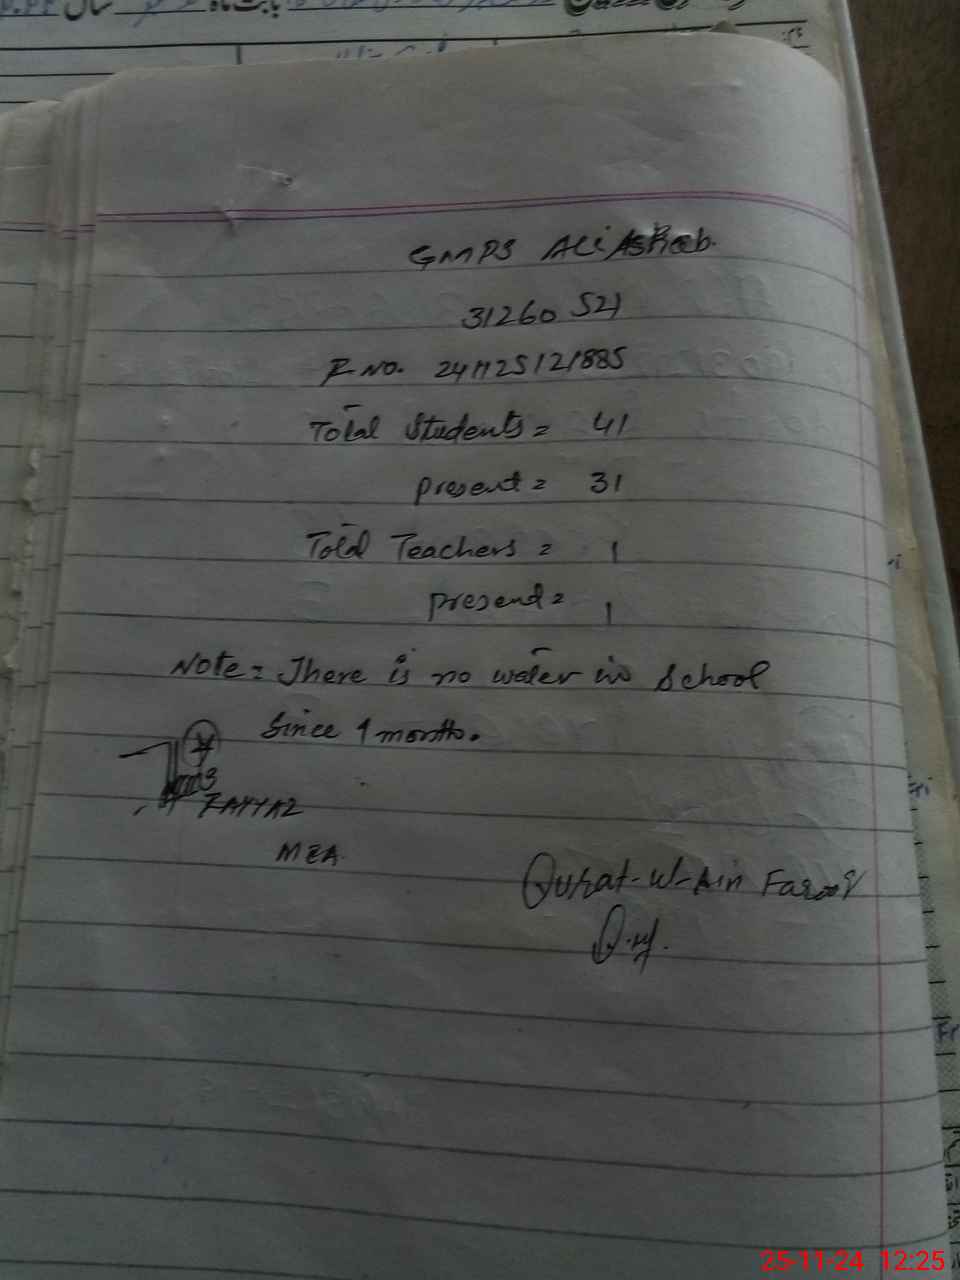 بابت ماہ سال
GMPS Ali Asheb.
31260521
R No. 241125121885
Total Students = 41
present = 31
Total Teachers = 1
present = 1
Note = There is no water in School
Since 4 months.
FAYYAZ
MEA.
Qurat-ul-Ain Farooq
Fri
Fri
25-11-24 12:25